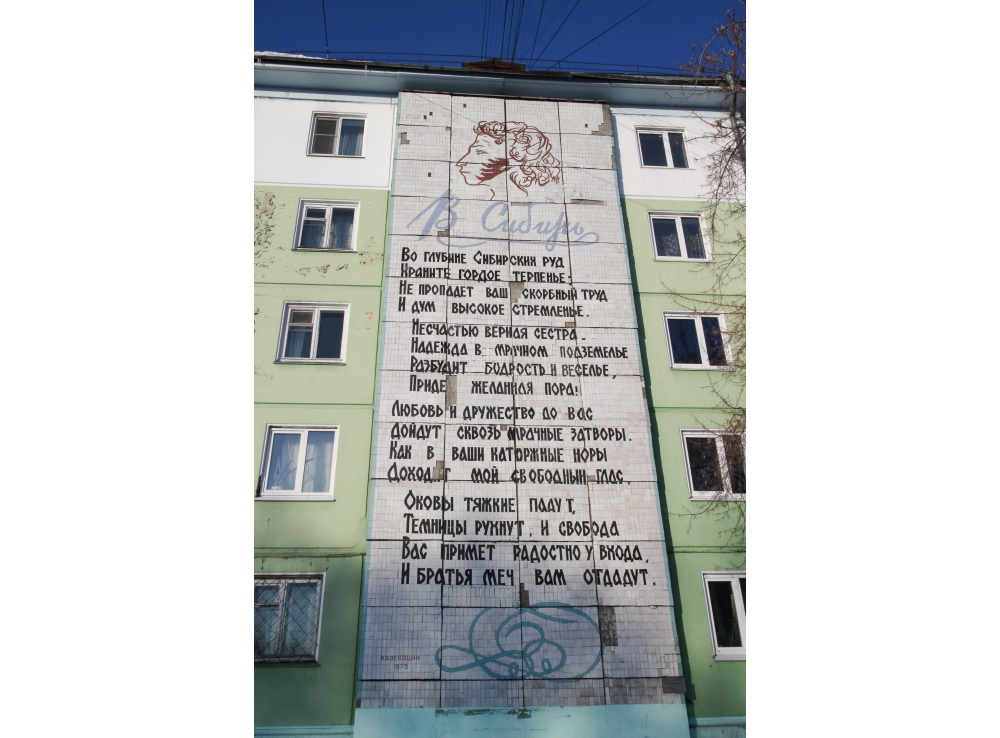 В Сибирь
Во глубине Сибирских руд
Храните гордое терпенье:
Не пропадет ваш скорбный труд
И дум высокое стремленье.
Несчастью верная сестра.
Надежда в мрачном подземелье
Разбудит бодрость и веселье,
Приде желанная пора:
Любовь и дружество до вас
Дойдут сквозь мрачные затворы.
Как в ваши каторжные норы
Доходит мой свободный глас.
Оковы тяжкие падут,
Темницы рухнут, и свобода
Вас примет радостно у входа,
И братья меч вам отдадут.
1979